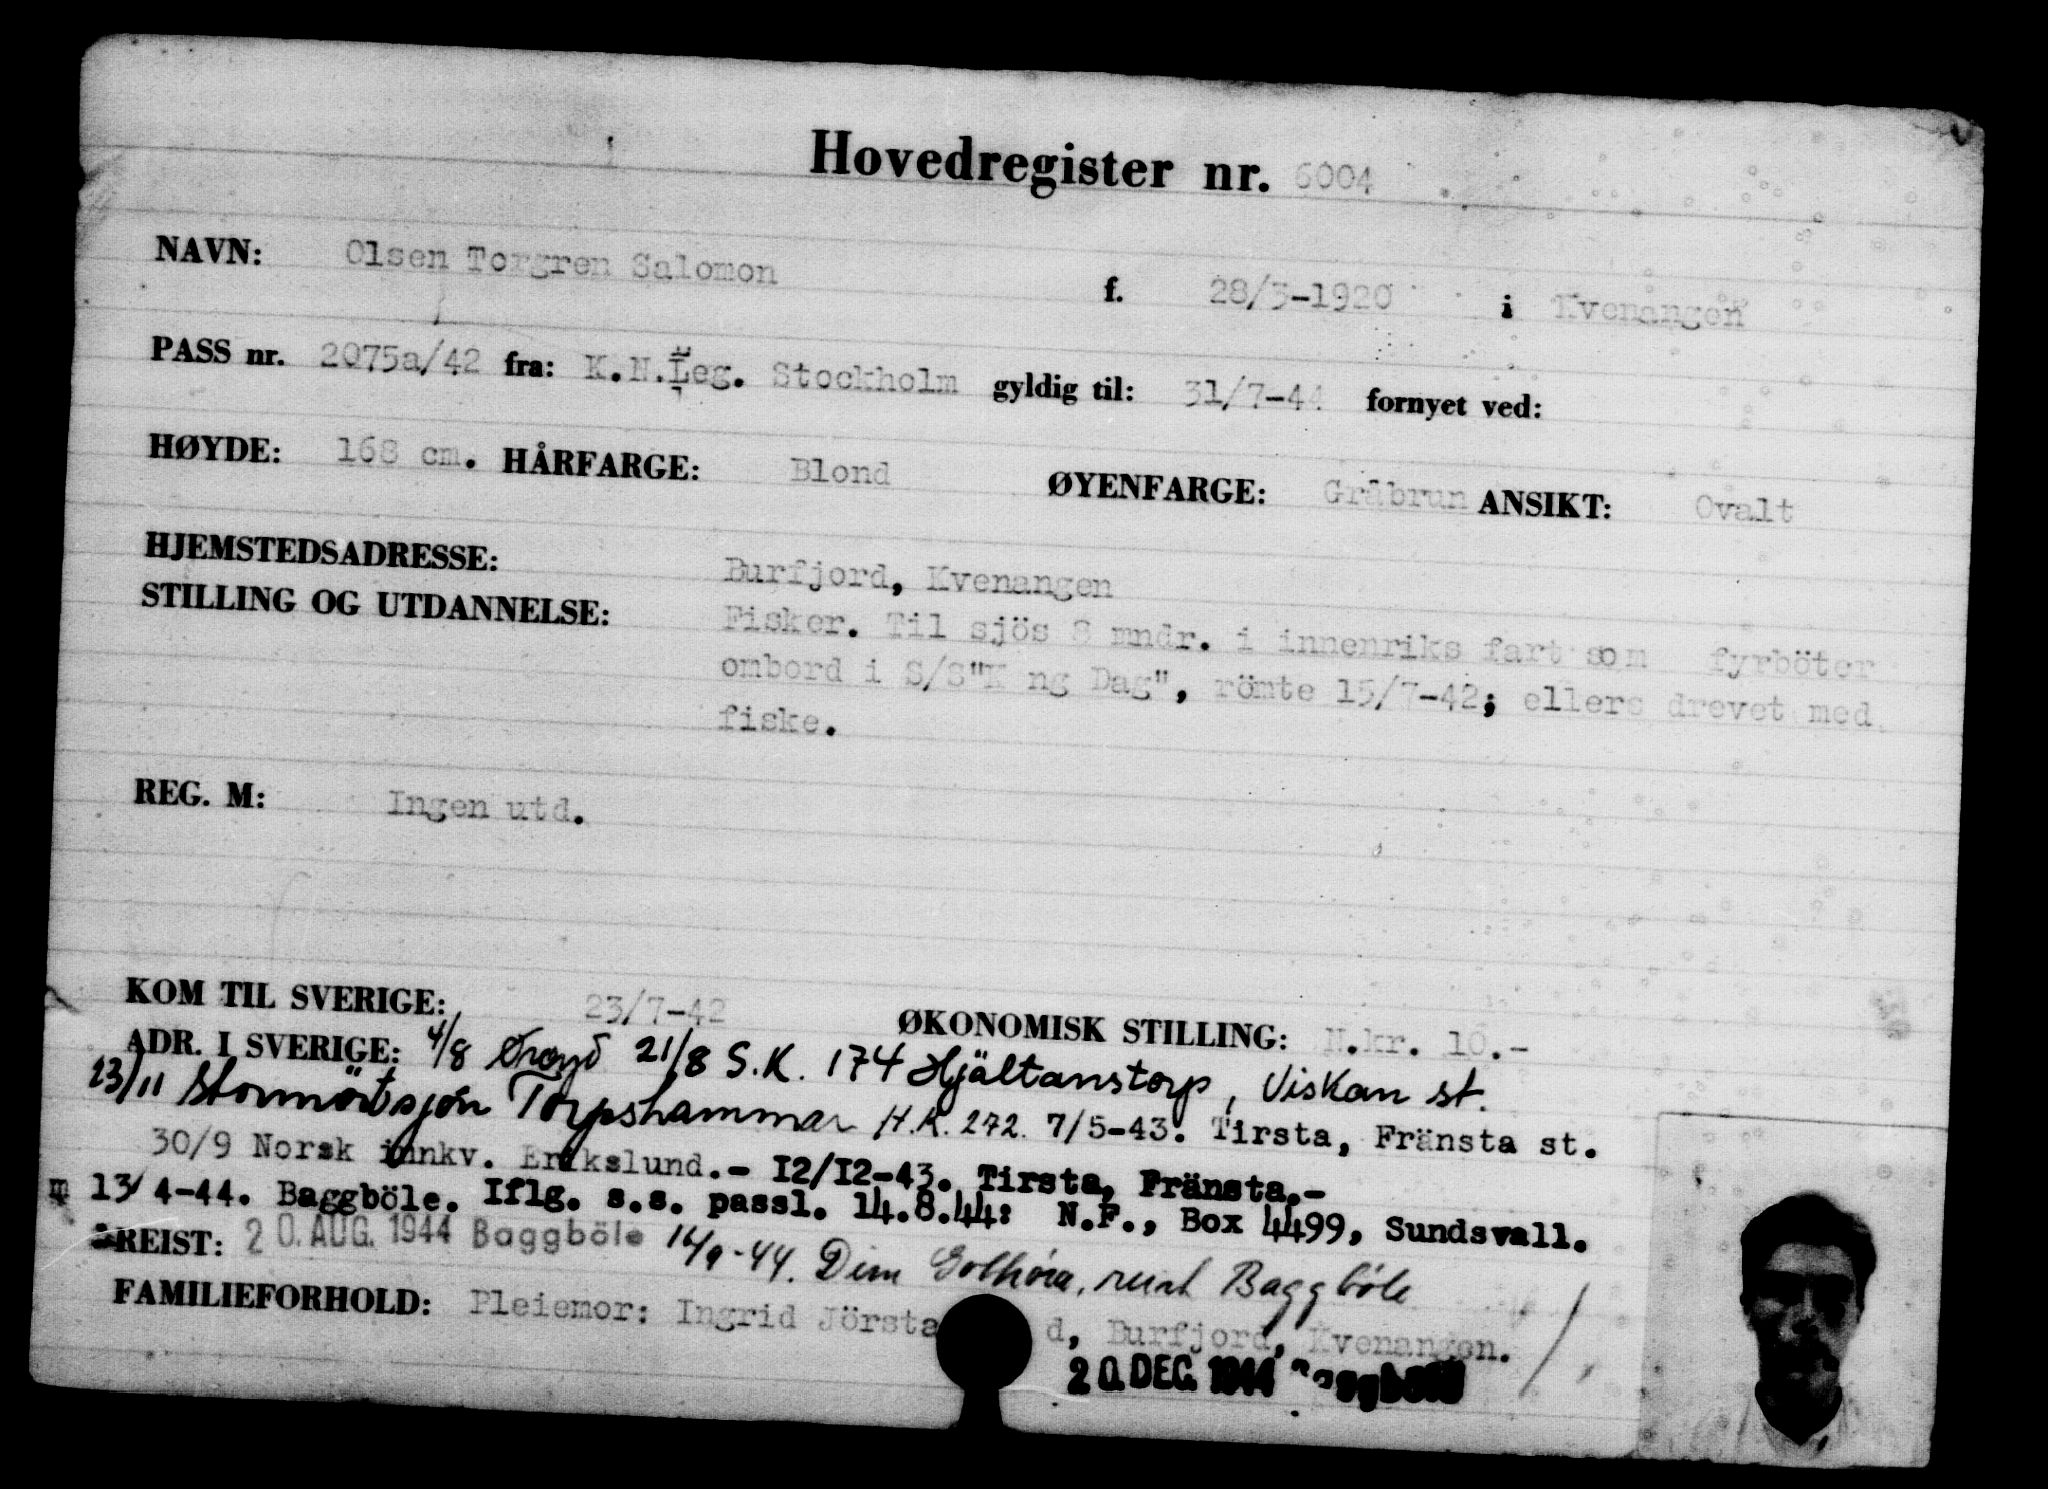 Hovedregister nr. 6004
NAVN: Olsen Torgren Salomon f. 28/3-1920 i Kvenangen
PASS nr. 2075a/42 fra: K.N.Leg. Stockholm gyldig til: 31/7-44 fornyet ved:
HØYDE: 168 cm. HÅRFARGE: Blond ØYENFARGE: Gråbrun ANSIKT: Ovalt
HJEMSTEDSADRESSE: Burfjord, Kvenangen
STILLING OG UTDANNELSE: Fisker. Til sjös 8 mndr. i innenriks fart som fyrböter
ombord i S/S"K ng Dag", römte 15/7-42; ellers drevet med
fiske.
REG. M: Ingen utd.
KOM TIL SVERIGE: 23/7-42 ØKONOMISK STILLING: N.kr. 10.-
ADR. I SVERIGE: 4/8 Öreryd 21/8 S.K. 174 Hjältanstorp, Viskan st.
23/11 Stormörtsjön Torpshammar H.K. 272. 7/5-43. Tirsta, Fränsta st.
30/9 Norsk innkv. Erikslund.- I2/I2-43. Tirsta, Fränsta.-
m 13/4-44. Baggböle. Iflg. s.s. passl. 14.8.44: N.F., Box 4499, Sundsvall.
REIST: 20. AUG. 1944 Baggböle 16/9-44. Dim Baggböle
FAMILIEFORHOLD: Pleiemor: Ingrid Jörsta d, Burfjord, Kvenangen.
20. DEC. 1944 Baggböle